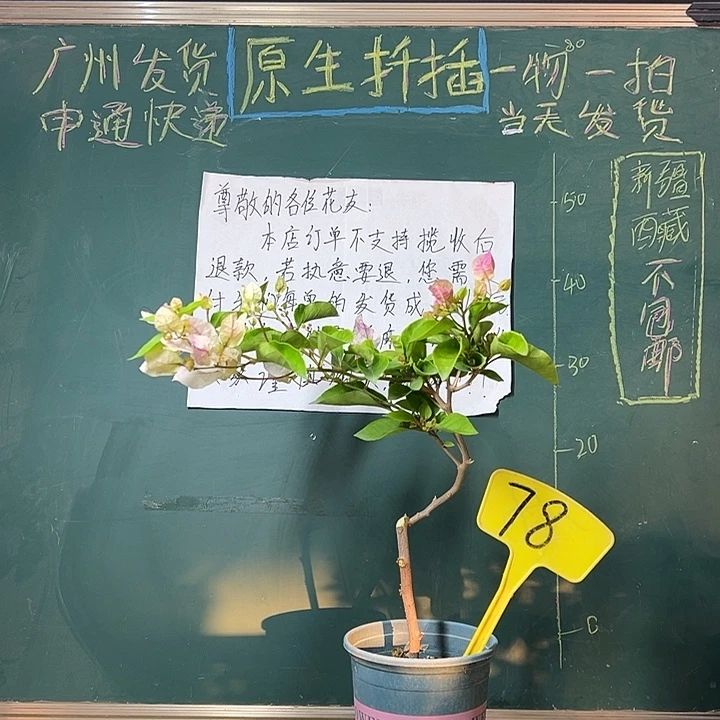 广州发货
申通快递
原生扦插
一物一拍
当天发货
尊敬的各位花友：
本店订单不支持揽收后
退款，若执意要退，您需
的发货成
新疆
西藏
不包邮
50
40
30
20
78